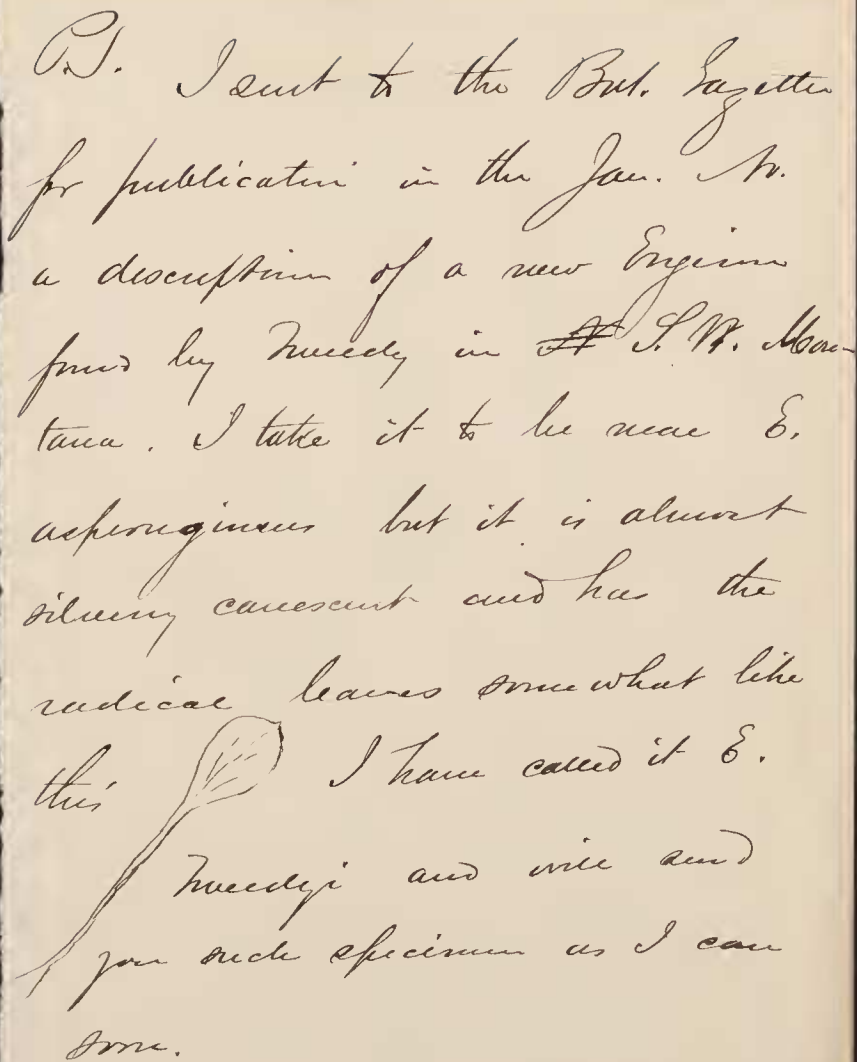 P.S. I sent to the Bot. Gazette
for publication in the Jan. No.
a description of a new Erigeron
found by Tweedy in N S. W. Mon-
tana. I take it to be near E.
asperugineus but it is almost
silvery canescent and has the
radical leaves somewhat like
this I have called it E.
Tweedyi and will send
you such specimen as I can
soon.